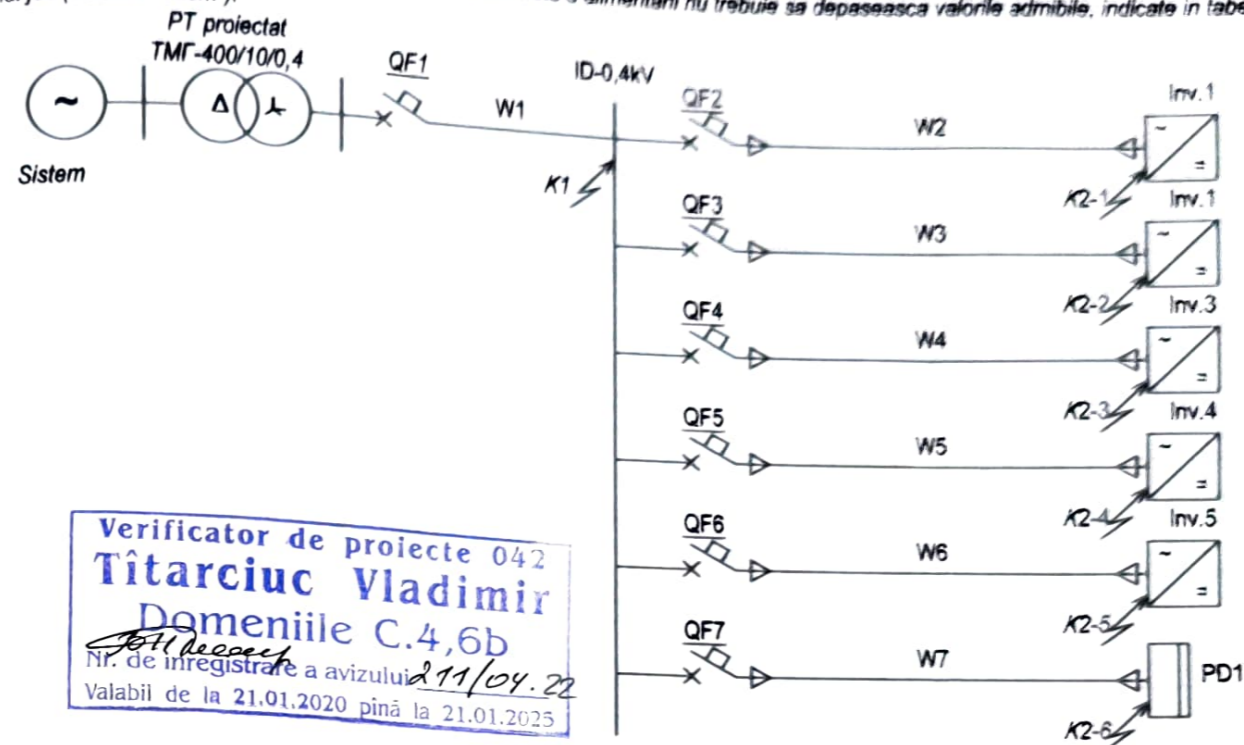 alimentarii nu trebuie sa depaseasca valorile admibile, indicate in tabe
PT proiectat
TMГ-400/10/0,4
QF1
W1
ID-0,4kV
~
Δ
Sistem
K1
QF2
W2
Inv.1
~
=
K2-1
QF3
W3
Inv.1
~
=
K2-2
QF4
W4
Inv.3
~
=
K2-3
QF5
W5
Inv.4
~
=
K2-4
QF6
W6
Inv.5
~
=
K2-5
QF7
W7
PD1
K2-6
Verificator de proiecte 042
Tîtarciuc Vladimir
Domeniile C.4,6b
Nr. de inregistrare a avizului 211/04.22
Valabil de la 21.01.2020 pină la 21.01.2025